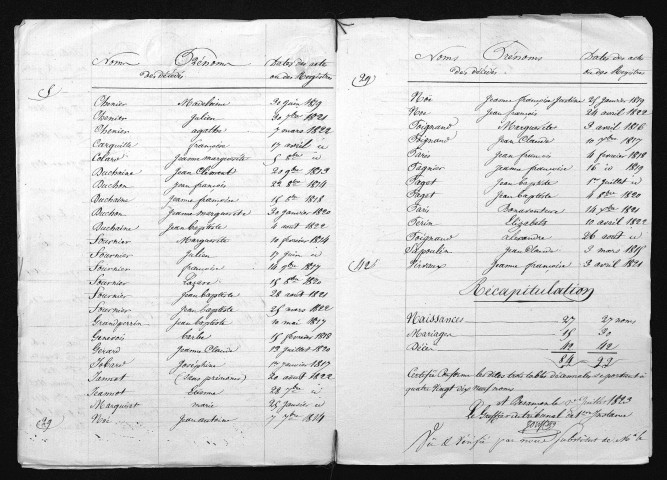 Noms Prénoms Dates des actes
des décédés ou des Registres
Chenier Madelaine 30 juin 1819
Chenier Julien 30 7bre 1821
Chenier agathe 7 mars 1822
françoise 17 avril id
Colard Jeanne marguerite 5 8bre id
Duchaine Jean Clément 20 9bre 1813
Buchon Jean françois 22 8bre 1814
Duchaine Jeanne françoise 15 1818
Buchon Jeanne marguerite 30 janvier 1820
Duchaine Jean baptiste 4 août 1822
Fournier Marguerite 10 février 1814
Fournier Julien 17 juin id
Fournier françoise 14 9bre 1817
Fournier Lazare 15 8bre 1820
Fournier Jean baptiste 28 août 1821
Fournier Jean baptiste 25 mars 1822
Grandperrin Jean baptiste 10 mai 1817
Genevois Barbe 15 février 1818
Gerard Jeanne Claude 13 juillet 1820
Joséphine 1er janvier 1817
(Sans prénoms) 20 août 1822
Jeannot Etienne 28 7bre id
Marguet marie 25 janvier id
29 Noé Jean antoine 7 7bre 1814
Noms Prénoms Dates des actes
29 des décédés ou des Registres
Noé Jeanne françoise Justine 25 janvier 1819
Noé Jean françois 24 avril 1822
Poignand Marguerite 3 avril 1816
Poignand Jean Claude 10 7bre 1817
Paris Jean francois 4 février 1818
Pagnier Jeanne françoise 16 id 1819
Paget Jean baptiste 1er juillet id
Paget Jean baptiste 4 8bre 1820
Paris Bonaventure 14 7bre 1821
Perin Elizabeth 10 avril 1822
Poignand alexandre 26 août id
Jean Claude 3 mars 1815
42 Jeanne françoise 3 avril 1821
Récapitulation
Naissances 27 27 noms
Mariages 15 30
Décès 42 42
84 99
Certifié Conforme les dites trois table décennales répondant à
quatre vingt dix neuf noms
A Besançon le 1er Juillet 1823
Le Greffier du tribunal de 1ère Instance
Vu & Vérifié par nous Substitut de Mr le